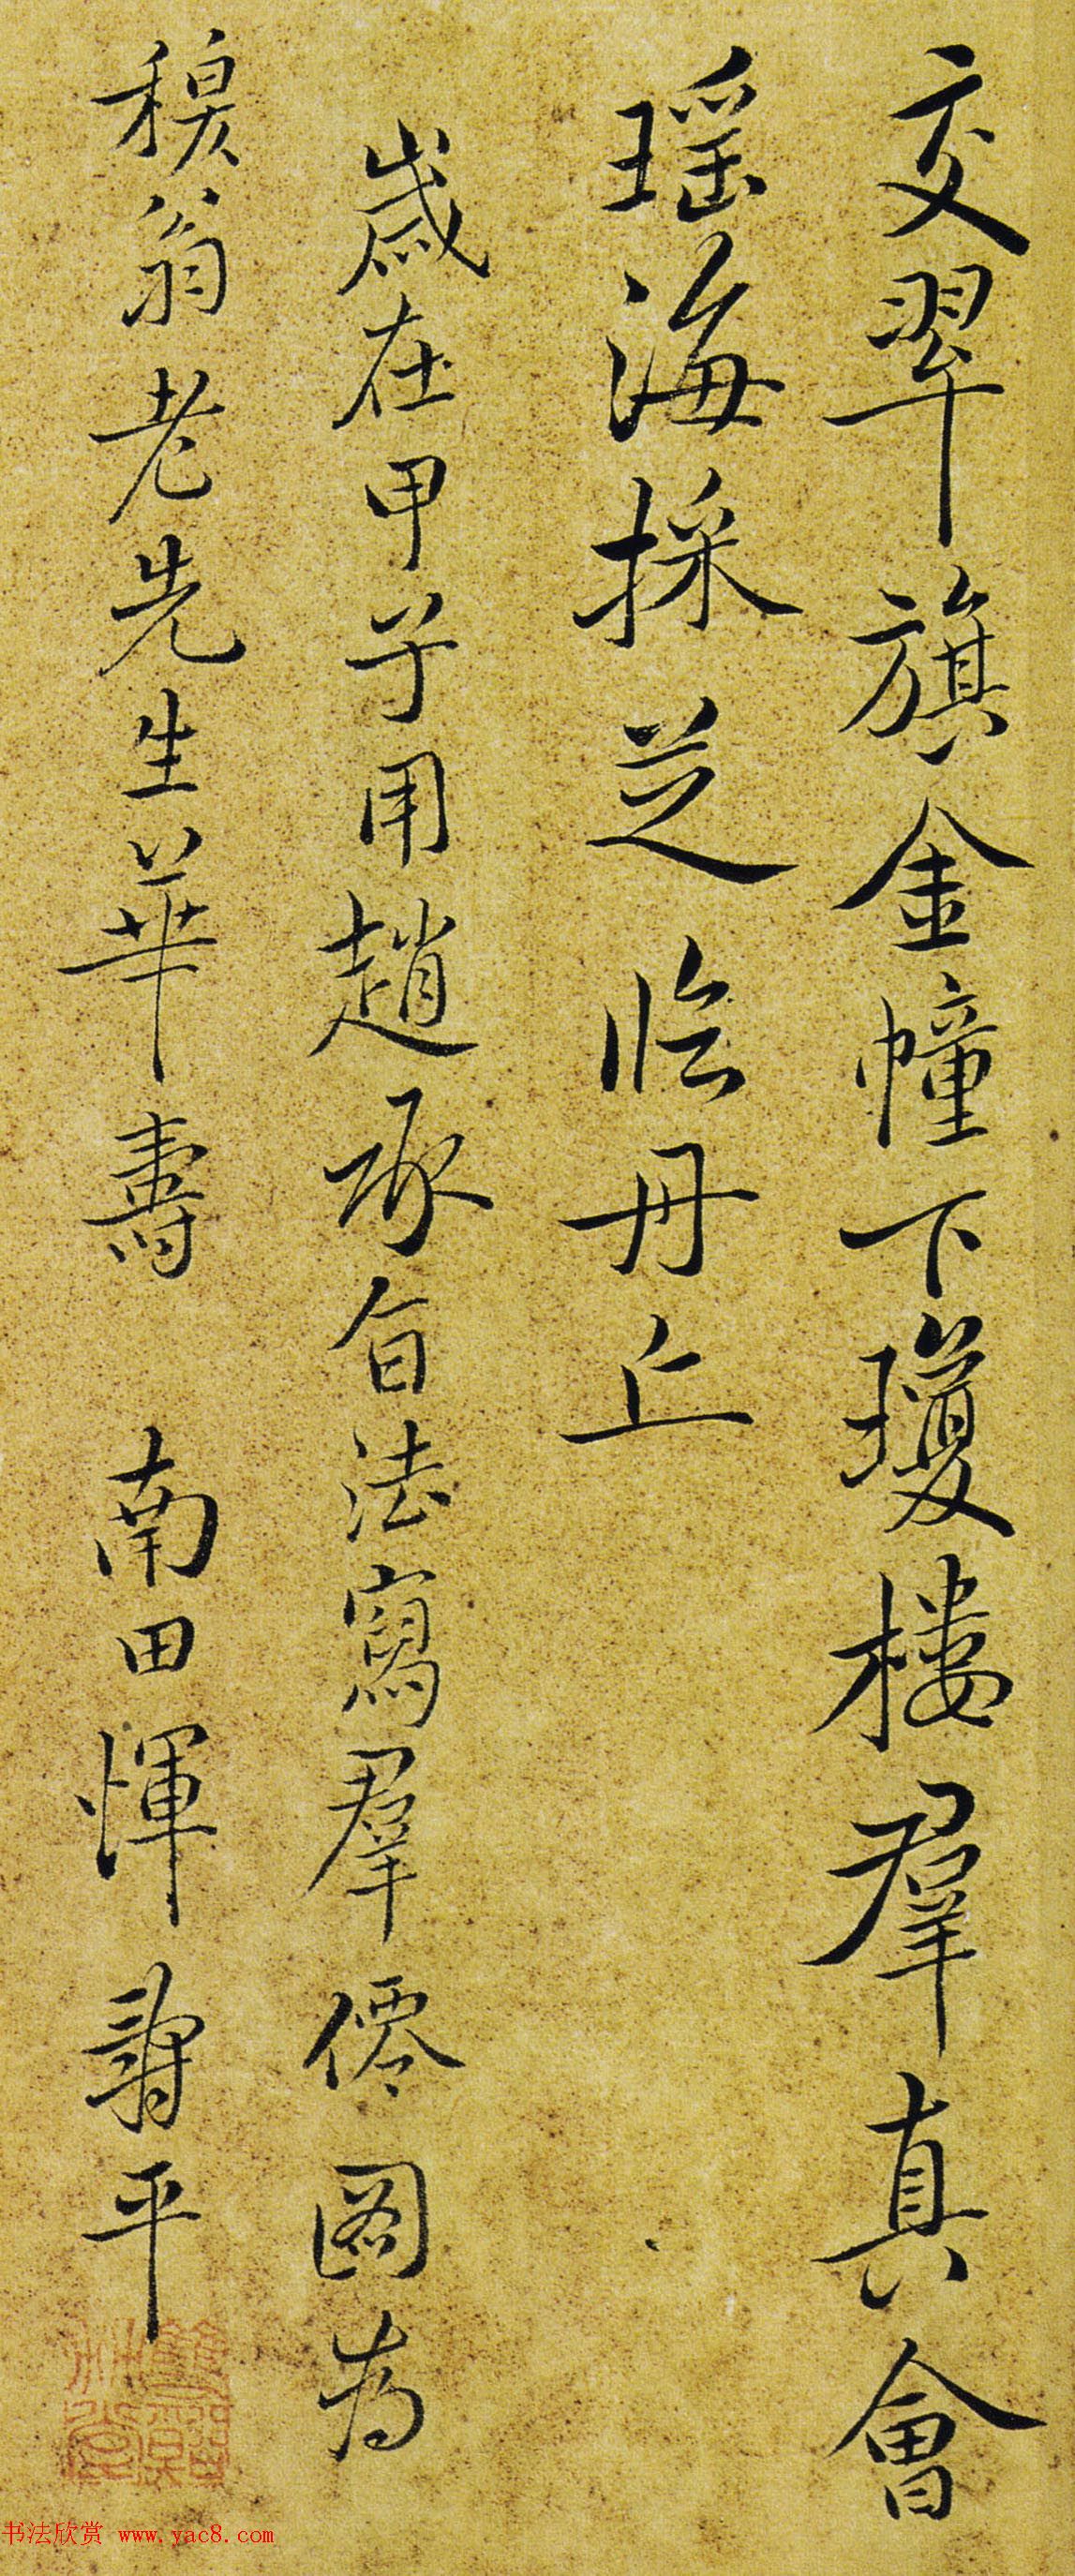 交翠旗金幢下瓊樓羣真會
瑶海採芝临丹丘
歲在甲子用趙承旨法寫羣僊圖为
老先生華壽 南田惲壽平
书法欣赏 www.yac8.com